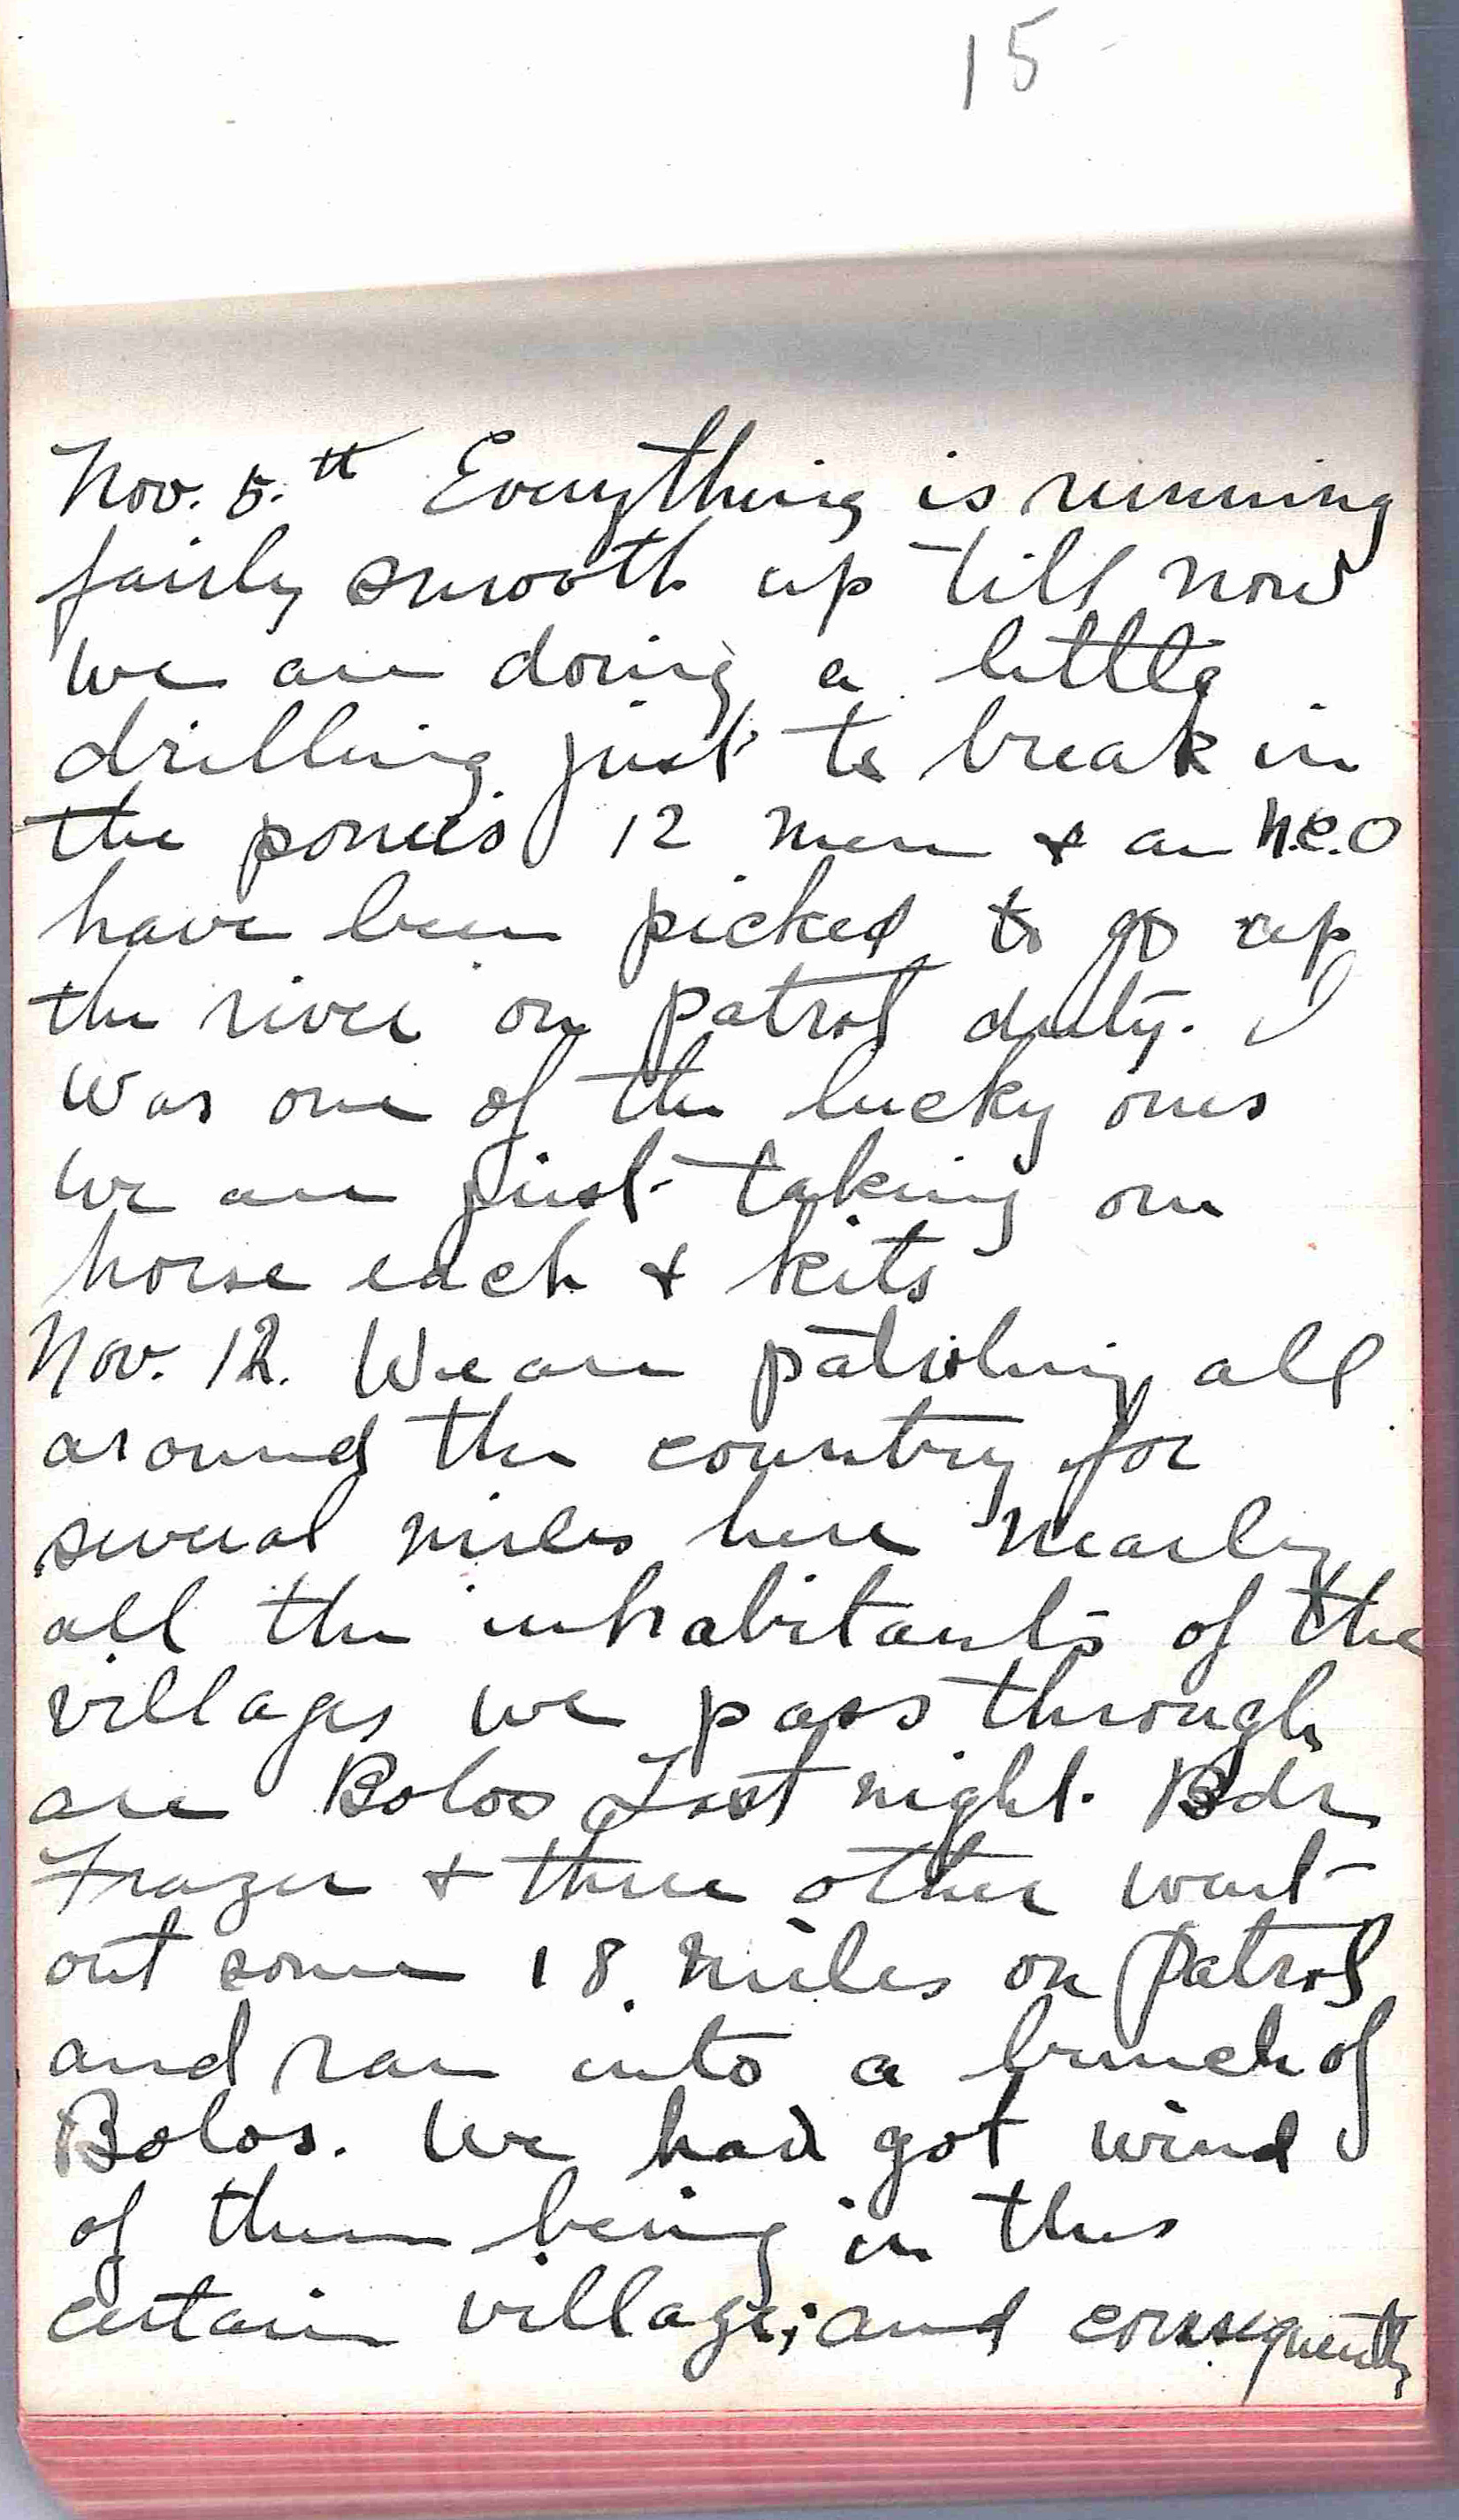 15
Nov. 5.th Everything is running
fairly smooth up till now
we are doing a little
drilling just to break in
the ponies 12 men & an N.C.O
have been picked to go up
the river on patrol duty. I
was one of the lucky ones
we are just taking one
horse each & kits
Nov. 12. We are patroling all
around the country for
several miles here nearly
all the inhabitants of the
villages we pass through
are Bolos Last night. Bdr
Frazer & three other went
out some 18 miles on Patrol
and ran into a bunch of
Bolos. We had got wind
of them being in this
certain village; and consequently